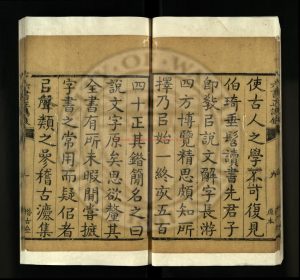 使古人之學不可復見
伯琦垂髫讀書先君子
即教㠯說文解字長游
四方博覽精思頗知所
擇乃㠯始一終亥五百
四十正其錯簡名之曰
說文字原矣思欲釐其
全書有所未暇閒嘗摭
字書之常用而疑佀者
㠯聲類之參稽古灋集